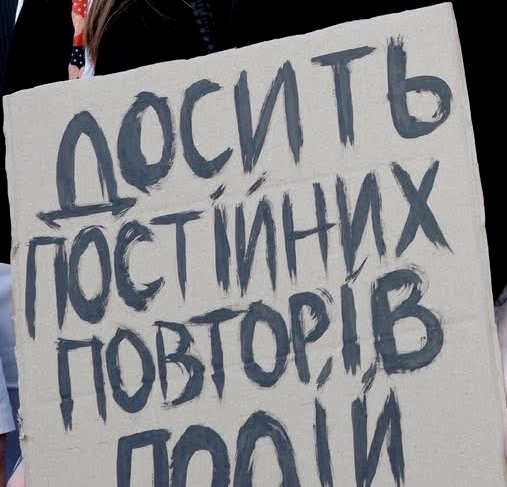 ДОСИТЬ
ПОСТІЙНИХ
ПОВТОРІВ
ПОДІЙ